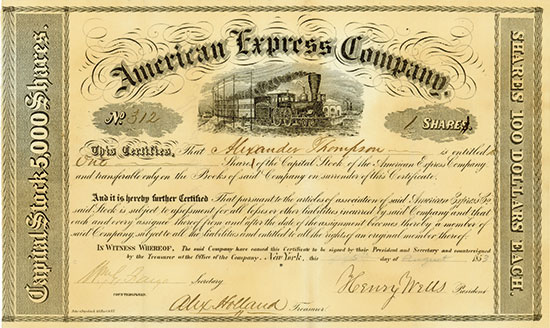 American Express Company.
Capital Stock 5,000 Shares.
SHARES 100 DOLLARS EACH.
No 312
1 SHARES.
This Certifies, That Alexander Thompson is entitled to
One Shares of the Capital Stock of the American Express Company
and transferable only on the Books of said Company on surrender of this Certificate.
And it is hereby further Certified That pursuant to the articles of association of said American Express Co
said Stock is subject to assessment for all losses or other liabilities incurred by said Company and that
each and every assignee thereof from and after the date of the assignment becomes thereby a member of
said Company, subject to all the liabilities and entitled to all the rights of an original member thereof.
IN WITNESS WHEREOF, The said Company have caused this Certificate to be signed by their President and Secretary and countersigned
by the Treasurer at the Office of the Company, New York, this day of August 1853
Wm G Fargo Secretary
Henry Wells President
COUNTERSIGNED,
Alex Holland Treasurer